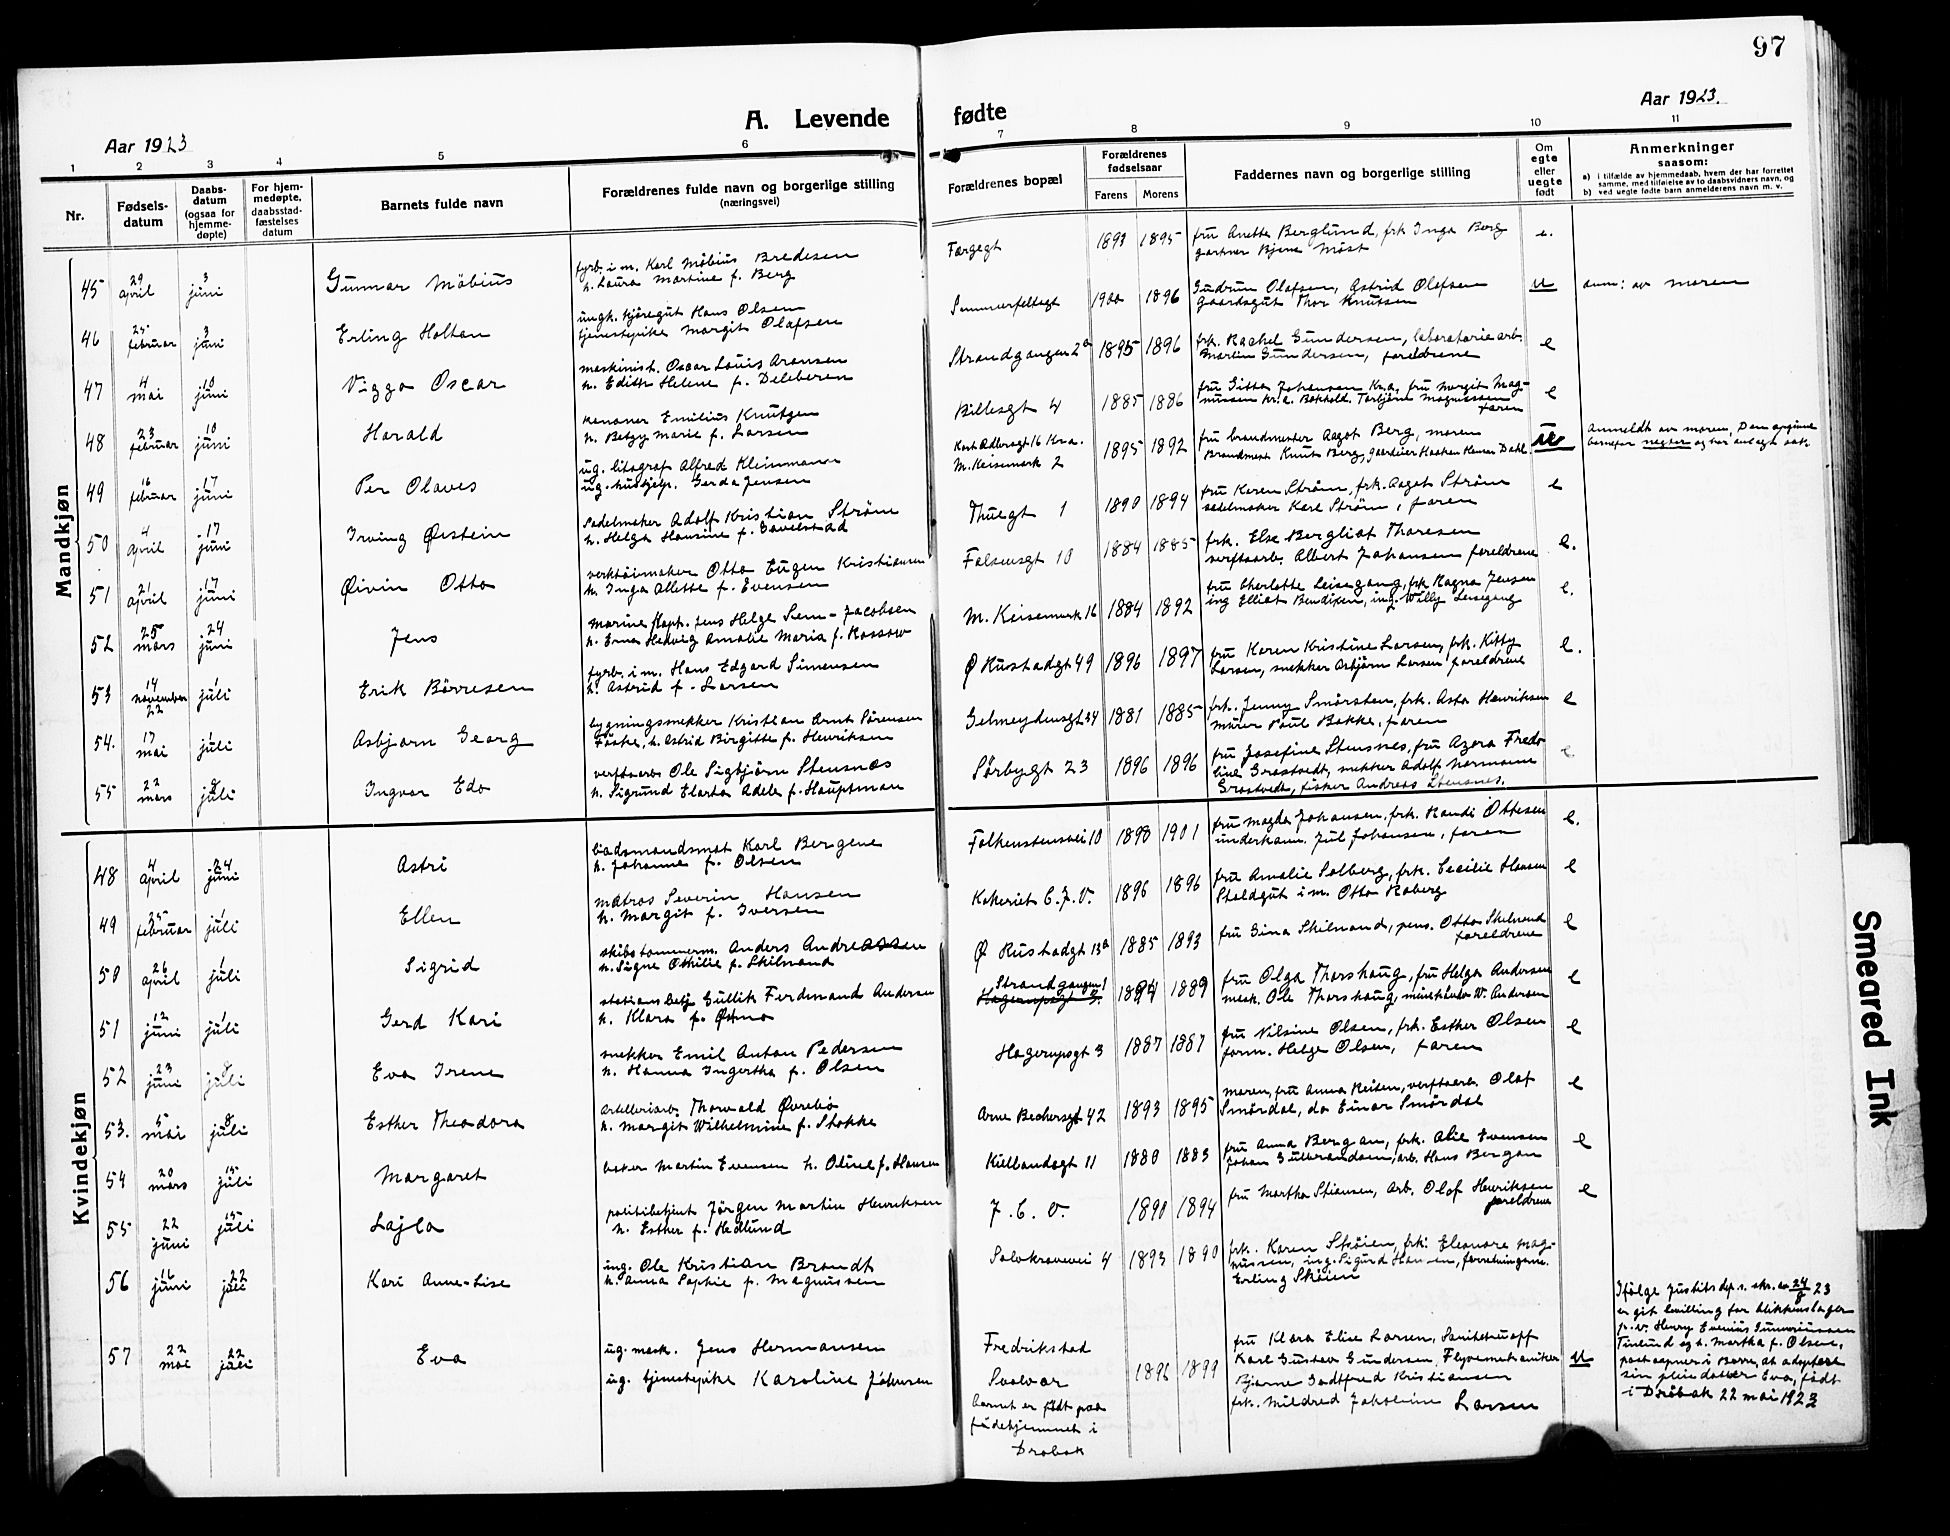 97
Aar 1923
A. Levende fødte
Aar 1923.
1 2 3 4 5 6 7 8 9 10 11
Nr.
Fødsels-
datum
Daabs-
datum
(ogsaa for
hjemme-
døpte)
For hjem-
medøpte,
daabsstad-
fæstelses
datum
Barnets fulde navn
Forældrenes fulde navn og borgerlige stilling
(næringsvei)
Forældrenes bopæl
Forældrenes
fødselsaar
Farens Morens
Faddernes navn og borgerlige stilling
Om
egte
eller
uegte
født
Anmerkninger
saasom:
a) i tilfælde av hjemmedaab, hvem der har forrettet
samme, med tilføielse av to daabsvidners navn, og
b) ved uegte fødte barn anmelderens navn m. v.
Mandkjøn
45 29 april 3 juni Gunnar Möbius
fyrb. i m. Karl Möbius Bredesen
h. Laura Martine f. Berg
Færgegt 1893 1895
fru Anette Berglund, frk Inga Berg
gartner Bjene Möst
e.
46 25 februar 3 juni Erling Holtan
ungk. kjøregut Hans Olsen
tjenestepike Margit Olafsen
Sommerfeltsgt 1900 1896
Gudrun Olafsen, Astrid Olafsen
gaardsgut Thor Knutsen
u anm: av moren
47 4 mai 10 juni Viggo Oscar
maskinist. Oscar Louis Aronsen
h. Edith Helene f. Deleberen
Strandgangen 2a 1895 1896
frk. Rachel Gundersen, laboratoriearb.
Martin Gundersen, foreldrene
e
48 23 februar 10 juni Harald
kanoner Emilius Knutzen
h. Betzy Marie f. Larsen
Billesgt 4 1885 1886
fru Gitta Johansen Kr.a, fru Margit Mag-
nussen Kr.a. Bokhold. Torbjörn Magnussen
faren
e
49 16 februar 17 juni Per Olaves
ug. litograf Alfred Kleinmann
ug. hushjelp. Gerda Jensen
M. Keisemark 2 1895 1892
fru brandmester Aagot Berg, moren
Brandmest Knut Berg, gaardeier Haaken Dahl.
u
Anmeldt av moren,
50 4 april 17 juni Irving Øistein
Sadelmaker Adolf Kristian Ström
h. Helga Hansine f. Gavelstad
Thuegt 1 1890 1894
fru Karen Ström, frk. Aagot Ström
sadelmaker Karl Ström, faren
e
51 21 april 17 juni Øivin Otto
verktöimaker Otto Eugen Kristiansen
h. Inga Alette f. Evensen
Falsensgt 10 1884 1885
frk. Else Bergliot Thoresen
verftsarb. Albert Johansen foreldrene
e.
52 25 mars 24 juni Jens
Marine Kapt. Jens Helge Sem-Jacobsen
h. Erna Hedvig Amalie Maria f. Rossow
M. Keisemark 16 1884 1892
fru Charlotte Leisegang, frk Ragna Jensen
ing Elliot Bendixen, ing. Willy Leisegang
e.
53 14 november 22 1 juli Erik Børresen
fyrb. i m. Hans Edgard Simensen
h. Astrid f. Larsen
Ø Rustadgt 49 1896 1897
fru Karen Kristine Larsen, frk. Kitty
Larsen, snekker Asbjörn Larsen foreldrene
e.
54. 17 mai 1 juli Asbjørn Georg
bygningssnekker Kristian Arnt Sörensen
Föske, h. Astrid Birgitte f. Henriksen
Gelmeydensgt 34 1881 1885
frk. Jenny Smörsten, frk. Asta Henriksen
murer Paul Bakke, faren
e
55 22 mars 8 juli Ingvar Edo
verftsarb Ole Sigbjörn Stensnes
h. Sigrund Elarta Adele f. Hauptman
Sörbygt 23 1896 1896
fru Josefine Stensnes, fru Azora Fredo
line Grostvedt, snekker Adolf Normann
Grostvedt, fisker Andreas Stensnes.
e
Kvindekjøn
48 4 april 24 juni Astri
baadsmandsmat Karl Bergene
h. Johanne f. Olsen
Folkenstensvei 10 1898 1901
fru Magda Johansen, frk. Randi Ottesen
underkan. Jul Johansen, faren
e.
49 25 februar 1 juli Ellen
matros Severin Hansen
h. Margit f. Iversen
Kokeriet C.J.V. 1896 1896
fru Amalie Solberg, frk. Cecilie Hansen
Staldgut i m. Otto Roberg
e
50 26 april 1 juli Sigrid
skibstømmerm. Anders Andreassen
h. Signe Othilie f. Skilnand
Ø Rustadgt 13a 1885 1893
fru Gina Skilnand, pens. Otto Skilnand
foreldrene
e
51 12 juni 1 juli Gerd Kari
stationsbetj Gullik Ferdinand Andersen
h. Klara f. Østmo
Strandgangen 1
Hagerupsgt 3. 1894 1889
fru Olga Thorshaug, fru Helga Andersen
mask. Ole Thorshaug, W. Andersen
e
52 23 juni 8 juli Eva Irene
snekker Emil Anton Pedersen
h. Hanna Ingertha f. Olsen
Hagerupsgt 3 1887 1887
fru Nilsine Olsen, frk. Esther Olsen
form. Helge Olsen, faren
e
53. 5 mai 8 juli Esther Theodora
artelleriarb. Thorvald Övrebö
h. Margit Wilhelmine f. Stokke
Arne Bechersgt 42 1893 1895
moren, fru Anna Reiten, verftsarb. Olaf
Smördal, do Einar Smördal
e
54 20 mars 15 juli Margaret
baker Martin Evensen h. Oline f. Hansen
Kiellandsgt 11 1880 1883
fru Anna Bergan, frk. Alie Evensen
Johan Gulbrandsen, arb. Hans Bergan
e
55 22 juni 15 juli Lajla
politibetjent Jörgen Martin Henriksen
h. Esther f. Hedlund
J. C. V. 1890 1894
fru Martha Stiansen, Arb. Olaf Henriksen
foreldrene
e
56 16 juni 22 juli Kari Anne-Lise
ing. Ole Kristian Brandt
h. Anna Sophie f. Magnussen
Solvkroneveien 4 1893 1890
frk. Karen Skøien, frk. Eleonore Mag-
nussen, ing. Sigurd Hansen, forretningsm.
Erling Skøien
57 22 mai 22 juli Eva
ug. mask. Jens Hermansen
ug. tjenestepike Karoline Johnsen
Fredrikstad
Svolvær
barnet er født paa
fødehjemmet i
Drøbak
1896 1899
fru Klara Elise Larsen,
Karl Gustav Gundersen, Flyvemekaniker
Bjarne Godtfred Kristiansen
frk. Mildred Jakobine Larsen
u
Ifølge Justitsdep.s. skr. av 24/8 23
er git bevilling for blikkenslager
p.v. Henry Evenius Gunerussen
Tinlund og h. Martha f. Olsen,
postaapner i Borre, at adoptere
sin pleiedatter Eva, født
i Drøbak 22 mai 1923
Smeared Ink